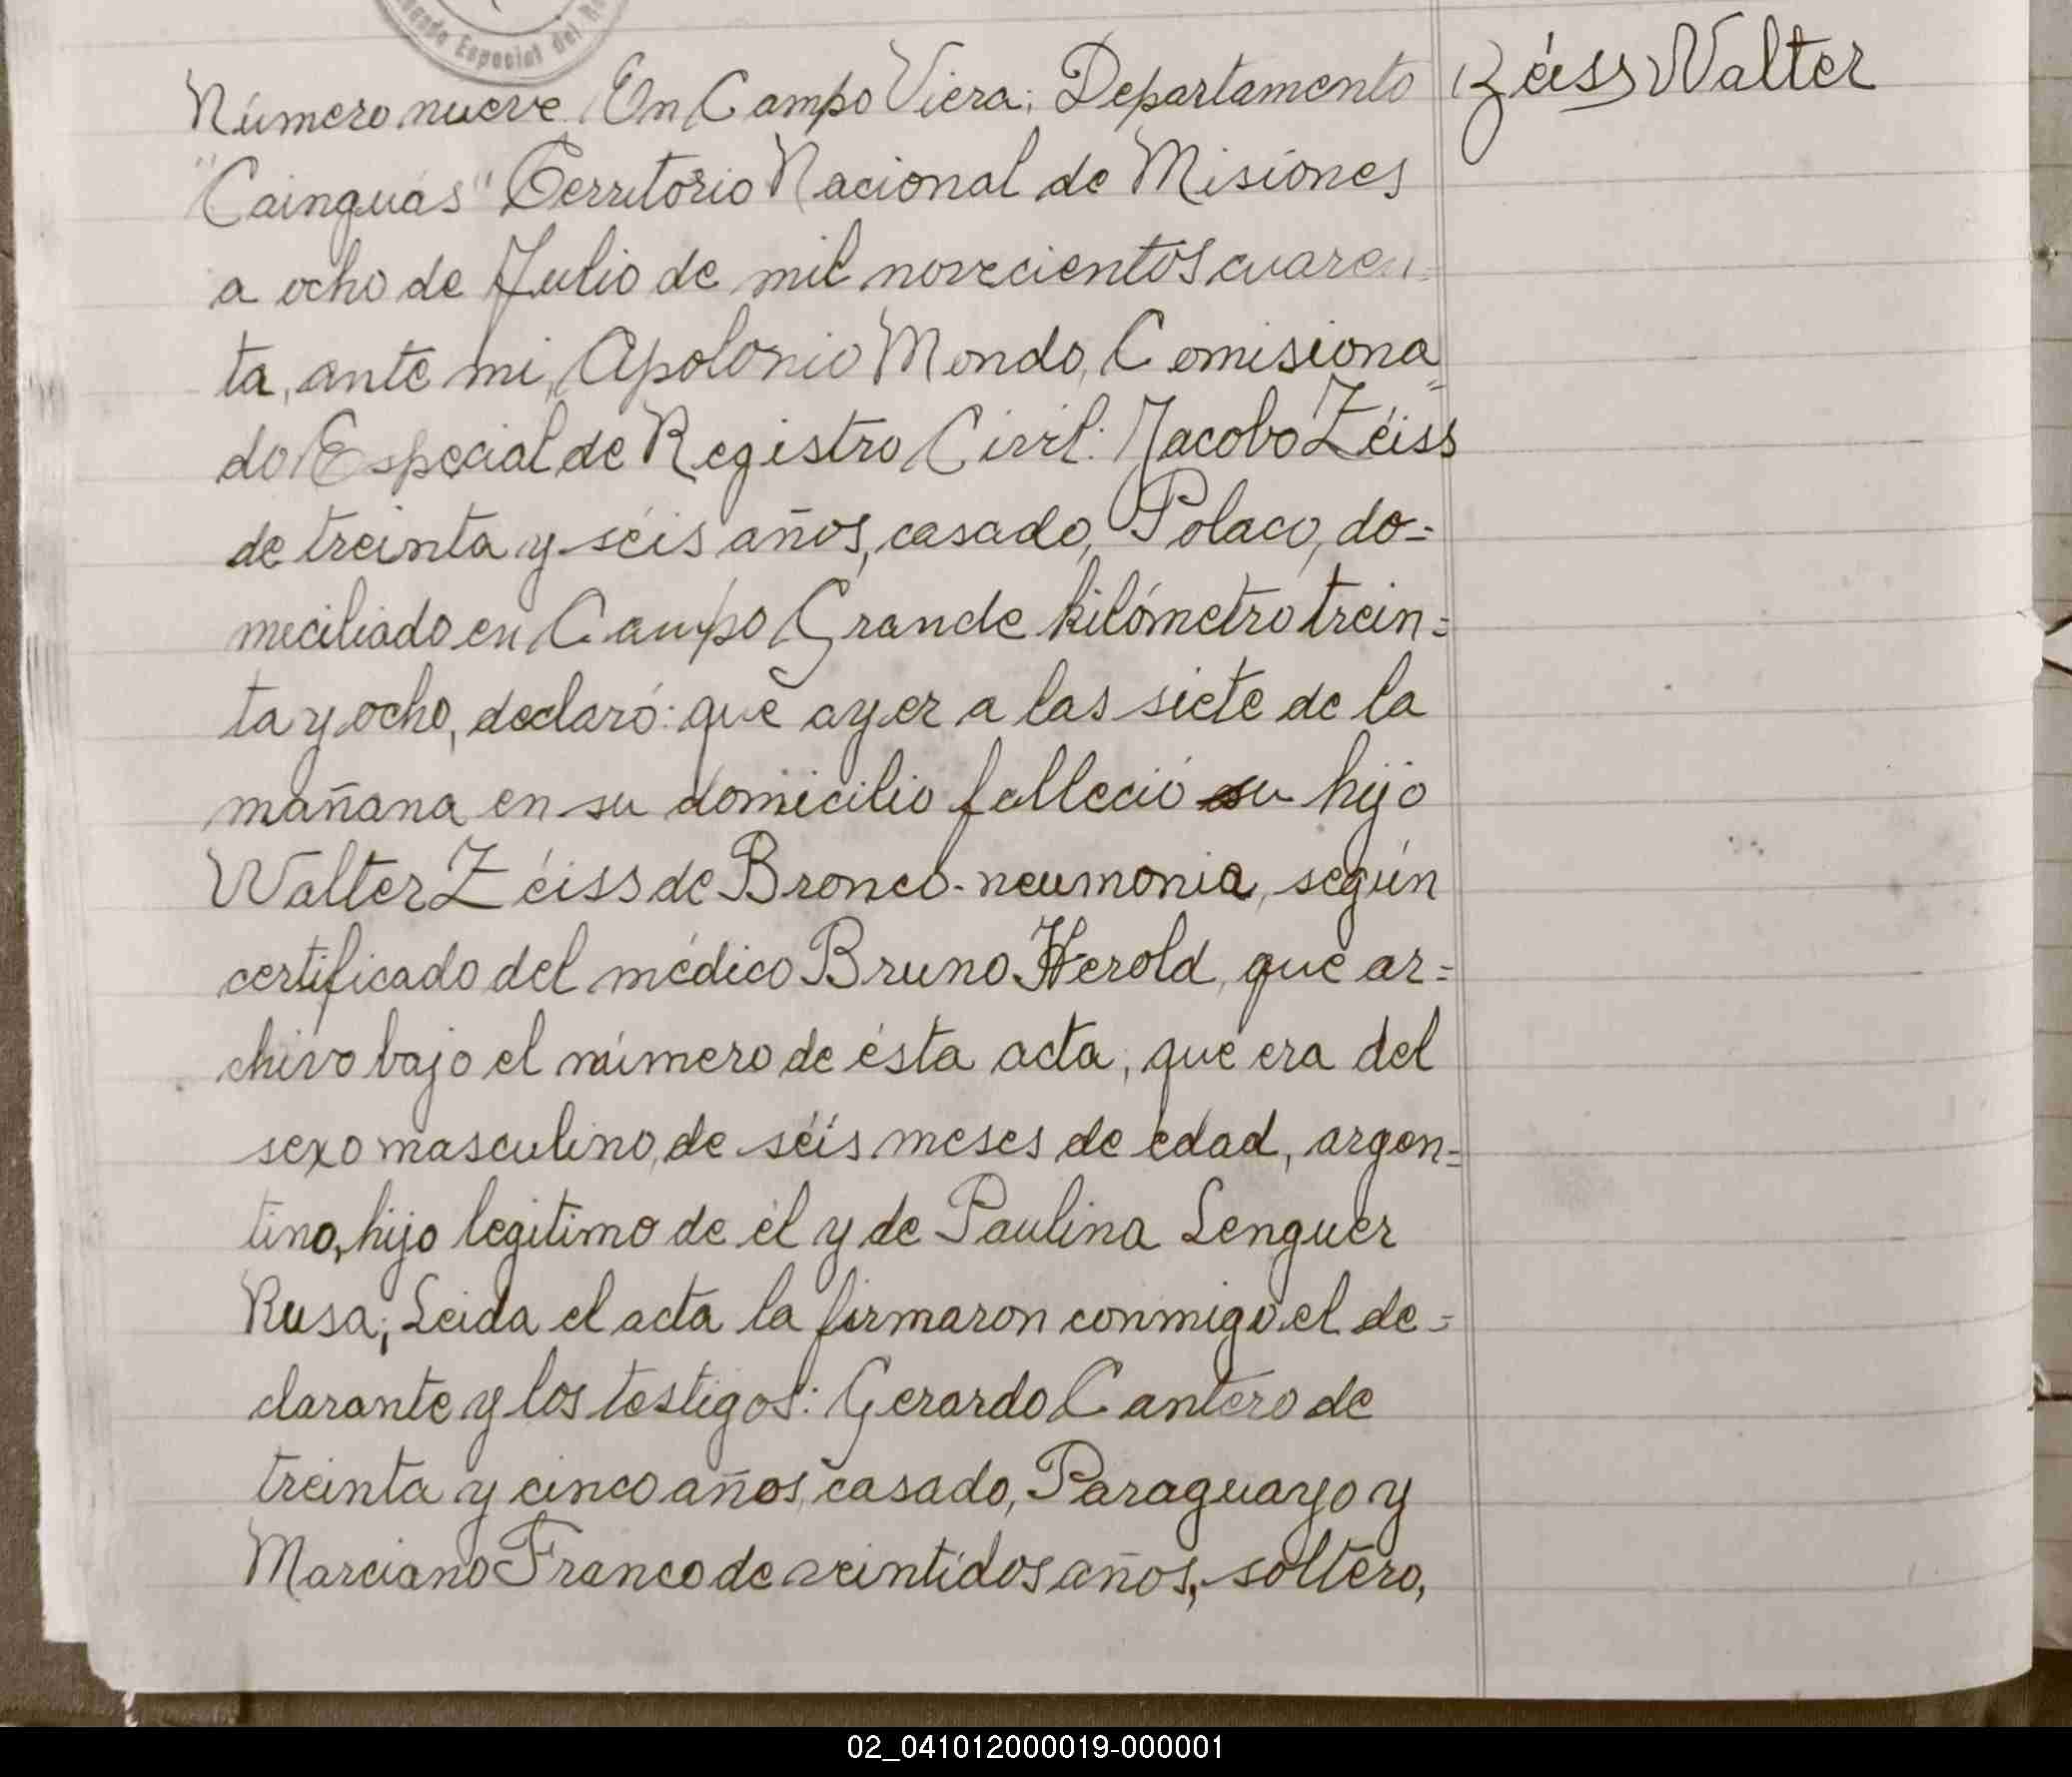 Especial del
Número nueve. En Campo Viera; Departamento
Zéiss Walter
"Cainguás" Territorio Nacional de Misiónes
a ocho de Julio de mil novecientos cuaren=
ta, ante mi, Apolonio Mondo, Comisiona=
do Especial de Registro Civil: Jacobo Zéiss
de treinta y séis años, casado, Polaco, do=
meciliado en Campo Grande kilómetro trein=
ta y ocho, declaró: que ayer a las siete de la
mañana en su domicilio falleció su hijo
Walter Zéiss de Bronco-neumonia, según
certificado del médico Bruno Herold, que ar=
chivo bajo el número de ésta acta; que era del
sexo masculino, de séis meses de edad, argen=
tino, hijo legitimo de él y de Paulina Lenguer
Rusa; Leida el acta la firmaron conmigo el de=
clarante y los testigos: Gerardo Cantero de
treinta y cinco años, casado, Paraguayo y
Marciano Franco de veintidos años, soltero,
02_041012000019-000001